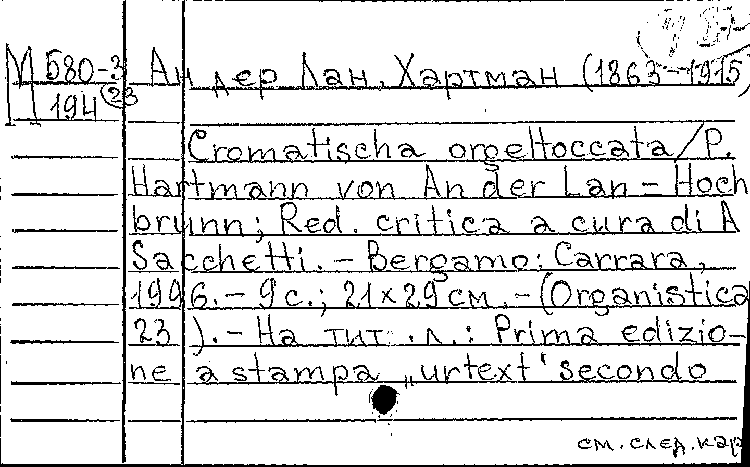 М 580-3 Ан дер Лан, Хартман (1863-1915)
194 23
Cromatischa orgeltoccata / P.
Hartmann von An der Lan - Hoch
brunn; Red. critica a cura di A
Sacchetti. - Bergamo: Carrara,
1996. - 9 с.; 21×29 см. - (Organistica
23 ). - На тит. л.: Prima edizio-
ne a stampa „urtext‘ secondo
см. след. кар